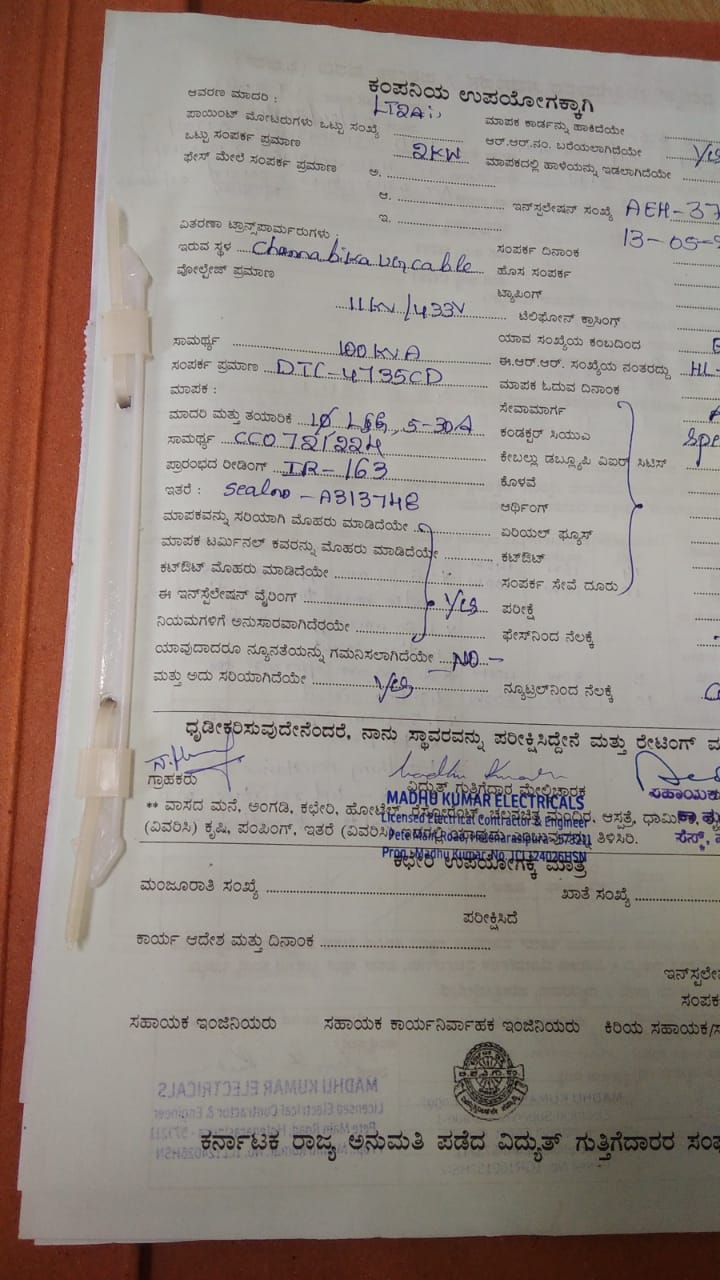 ಕಂಪನಿಯ ಉಪಯೋಗಕ್ಕಾಗಿ
ಆವರಣ ಮಾದರಿ : LT2Ai,, ಮಾಪಕ ಕಾರ್ಡನ್ನು ಹಾಕಿದೆಯೇ
ಪಾಯಿಂಟ್ ಮೋಟರುಗಳು ಒಟ್ಟು ಸಂಖ್ಯೆ ಆರ್.ಆರ್.ನಂ. ಬರೆಯಲಾಗಿದೆಯೇ
ಒಟ್ಟು ಸಂಪರ್ಕ ಪ್ರಮಾಣ 2KW ಮಾಪಕದಲ್ಲಿ ಹಾಳೆಯನ್ನು ಇಡಲಾಗಿದೆಯೇ
ಫೇಸ್ ಮೇಲೆ ಸಂಪರ್ಕ ಪ್ರಮಾಣ ಅ.
ಆ. ಇನ್‌ಸ್ಪಲೇಷನ್ ಸಂಖ್ಯೆ AEH-37
ಇ. 13-05-
ವಿತರಣಾ ಟ್ರಾನ್ಸ್‌ಪಾರ್ಮರುಗಳು : ಸಂಪರ್ಕ ದಿನಾಂಕ
ಇರುವ ಸ್ಥಳ ಹೊಸ ಸಂಪರ್ಕ
ವೋಲ್ಟೇಜ್ ಪ್ರಮಾಣ ಟ್ಯಾಪಿಂಗ್
11KV/433V ಟೆಲಿಫೋನ್ ಕ್ರಾಸಿಂಗ್
ಸಾಮರ್ಥ್ಯ 100 KVA ಯಾವ ಸಂಖ್ಯೆಯ ಕಂಬದಿಂದ
ಸಂಪರ್ಕ ಪ್ರಮಾಣ DTC-4735CD ಈ.ಆರ್.ಆರ್. ಸಂಖ್ಯೆಯ ನಂತರದ್ದು HL-
ಮಾಪಕ : ಮಾಪಕ ಓದುವ ದಿನಾಂಕ
ಮಾದರಿ ಮತ್ತು ತಯಾರಿಕೆ 1Ø L&G, 5-30A ಸೇವಾಮಾರ್ಗ
ಸಾಮರ್ಥ್ಯ ಕಂಡಕ್ಟರ್ ಸಿಯುಎ
ಪ್ರಾರಂಭದ ರೀಡಿಂಗ್ IR-163 ಕೇಬಲ್ಲು ಡಬ್ಲ್ಯೂಪಿ ವಿಐಆರ್ ಸಿಟಿಸ್
ಇತರೆ : ಕೊಳವೆ
ಆರ್ಥಿಂಗ್
ಮಾಪಕವನ್ನು ಸರಿಯಾಗಿ ಮೊಹರು ಮಾಡಿದೆಯೇ ಏರಿಯಲ್ ಫ್ಯೂಸ್
ಮಾಪಕ ಟರ್ಮಿನಲ್ ಕವರನ್ನು ಮೊಹರು ಮಾಡಿದೆಯೇ ಕಟ್‌ಔಟ್
ಕಟ್‌ಔಟ್ ಮೊಹರು ಮಾಡಿದೆಯೇ ಸಂಪರ್ಕ ಸೇವೆ ದೂರು
ಈ ಇನ್‌ಸ್ಪೆಲೇಷನ್ ವೈರಿಂಗ್ Yes ಪರೀಕ್ಷೆ
ನಿಯಮಗಳಿಗೆ ಅನುಸಾರವಾಗಿದೆರಯೇ ಫೇಸ್‌ನಿಂದ ನೆಲಕ್ಕೆ
ಯಾವುದಾದರೂ ನ್ಯೂನತೆಯನ್ನು ಗಮನಿಸಲಾಗಿದೆಯೇ NO-
ಮತ್ತು ಅದು ಸರಿಯಾಗಿದೆಯೇ Yes ನ್ಯೂಟ್ರಲ್‌ನಿಂದ ನೆಲಕ್ಕೆ
ಧೃಡೀಕರಿಸುವುದೇನೆಂದರೆ, ನಾನು ಸ್ಥಾವರವನ್ನು ಪರೀಕ್ಷಿಸಿದ್ದೇನೆ ಮತ್ತು ರೇಟಿಂಗ್
Madhu Kumar
ಗ್ರಾಹಕರು ವಿದ್ಯುತ್ ಗುತ್ತಿಗೆದಾರ ಮೇಲ್ವಿಚಾರಕ ಸಹಾಯಕ
MADHU KUMAR ELECTRICALS
Licensed Electrical Contractor & Engineer
Pete Main Road, Holenarasipura - 573211
Prop.: Madhu Kumar. No. 1CL124026HSN
** ವಾಸದ ಮನೆ, ಅಂಗಡಿ, ಕಛೇರಿ, ಹೋಟೆಲ್, ರೆಸ್ಟೋರೆಂಟ್, ಚಲನಚಿತ್ರ ಮಂದಿರ, ಆಸ್ಪತ್ರೆ, ಧಾರ್ಮಿಕ
(ವಿವರಿಸಿ) ಕೃಷಿ, ಪಂಪಿಂಗ್, ಇತರೆ (ವಿವರಿಸಿ) ತಿಳಿಸಿರಿ.
ಕಛೇರಿ ಉಪಯೋಗಕ್ಕೆ ಮಾತ್ರ
ಮಂಜೂರಾತಿ ಸಂಖ್ಯೆ ಖಾತೆ ಸಂಖ್ಯೆ
ಪರೀಕ್ಷಿಸಿದೆ
ಕಾರ್ಯ ಆದೇಶ ಮತ್ತು ದಿನಾಂಕ
ಸಹಾಯಕ ಇಂಜಿನಿಯರು ಸಹಾಯಕ ಕಾರ್ಯನಿರ್ವಾಹಕ ಇಂಜಿನಿಯರು ಕಿರಿಯ ಸಹಾಯಕ/
ಕರ್ನಾಟಕ ರಾಜ್ಯ ಅನುಮತಿ ಪಡೆದ ವಿದ್ಯುತ್ ಗುತ್ತಿಗೆದಾರರ